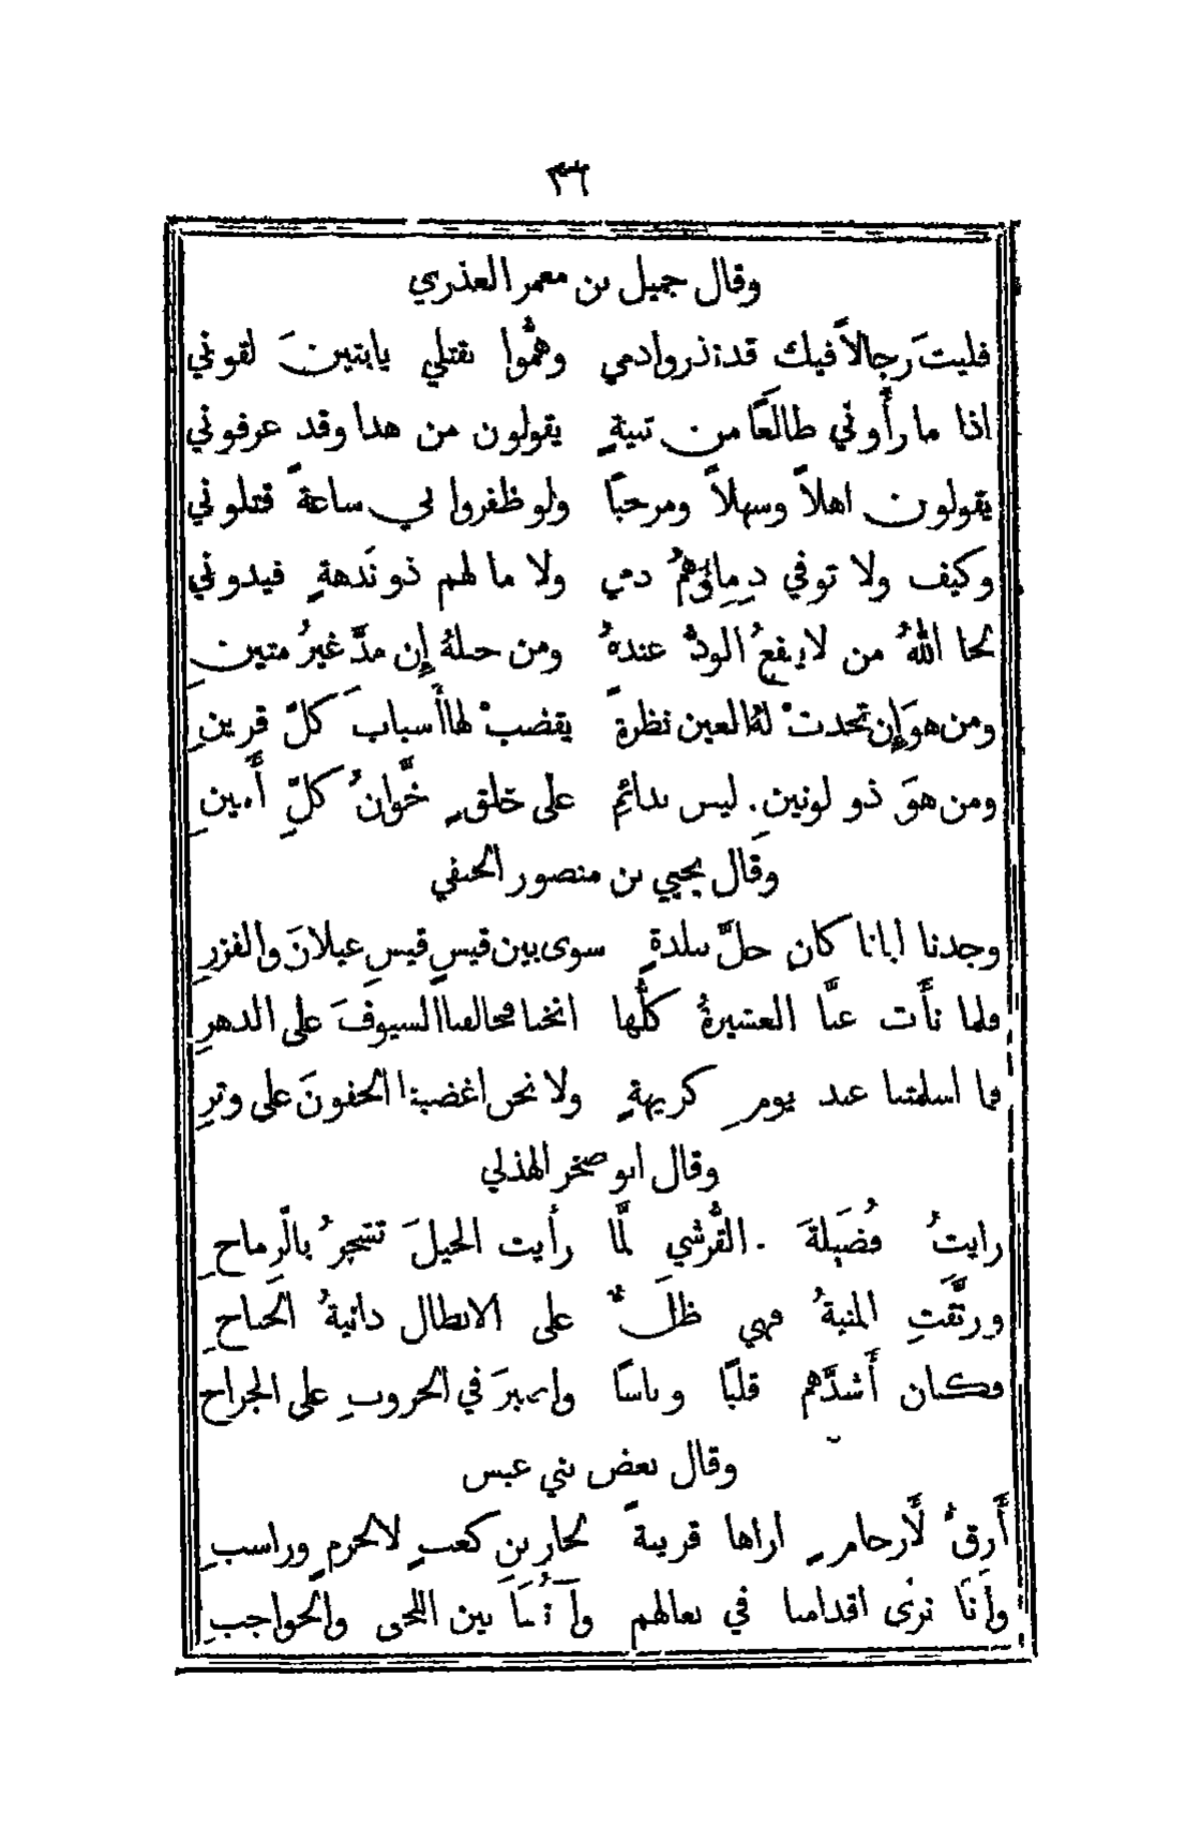 ٣٦
وقال جميل بن معمر العذري
فليتَ رجالاً فيك قد نذروا دمي وهمُّوا بقتلي يابثينَ لقوني
اذا ما رأَوني طالعًا من ثنيةٍ يقولون من هذا وقد عرفوني
يقولون اهلاً وسهلاً ومرحبًا ولو ظفروا بي ساعةً قتلوني
وكيف ولا توفي دِماؤهمُ دمي ولا ما لهم ذو ندهةٍ فيدوني
لحا اللهُ من لا ينفعُ الودُّ عندهُ ومن حبلهُ إِن مدَّ غيرُ متينِ
ومن هوَ إِن تحدثْ لهُ العين نظرةً يقضبْ لها أَسبابَ كلّ قرينِ
ومن هوَ ذو لونينِ ليس بدائمِ على خلقٍ خَوَّانُ كلِّ أَمينِ
وقال يحيي بن منصور الحنفي
وجدنا ابانا كان حلَّ ببلدةٍ سوى بين قيسٍ قيسِ عيلانَ والفزرِ
فلما نأَت عنَّا العشيرةُ كلُّها انخنا فحالفنا السيوفَ على الدهرِ
فما اسلمتنا عند يومِ كريهةٍ ولا نحن اغضينا الجفونَ على وترِ
وقال ابو صخر الهذلي
رايتُ فُضَيلةَ القُرشي لمَّا رأَيت الخيلَ تشجرُ بالرّماحِ
ورنَّقتِ المنيةُ فهي ظلٌّ على الابطال دانيةُ الجَناحِ
فكان أَشدَّهم قلبًا وباسًا واصبرَ في الحروبِ على الجراحِ
وقال بعض بني عبس
أَرقُّ لأَرحامٍ اراها قريبةً لحارِ بنِ كعبٍ لا لجرمٍ وراسبِ
وأَنا نرى اقدامنا في نعالهم وآنُفَنَا بين اللحى والحواجبِ